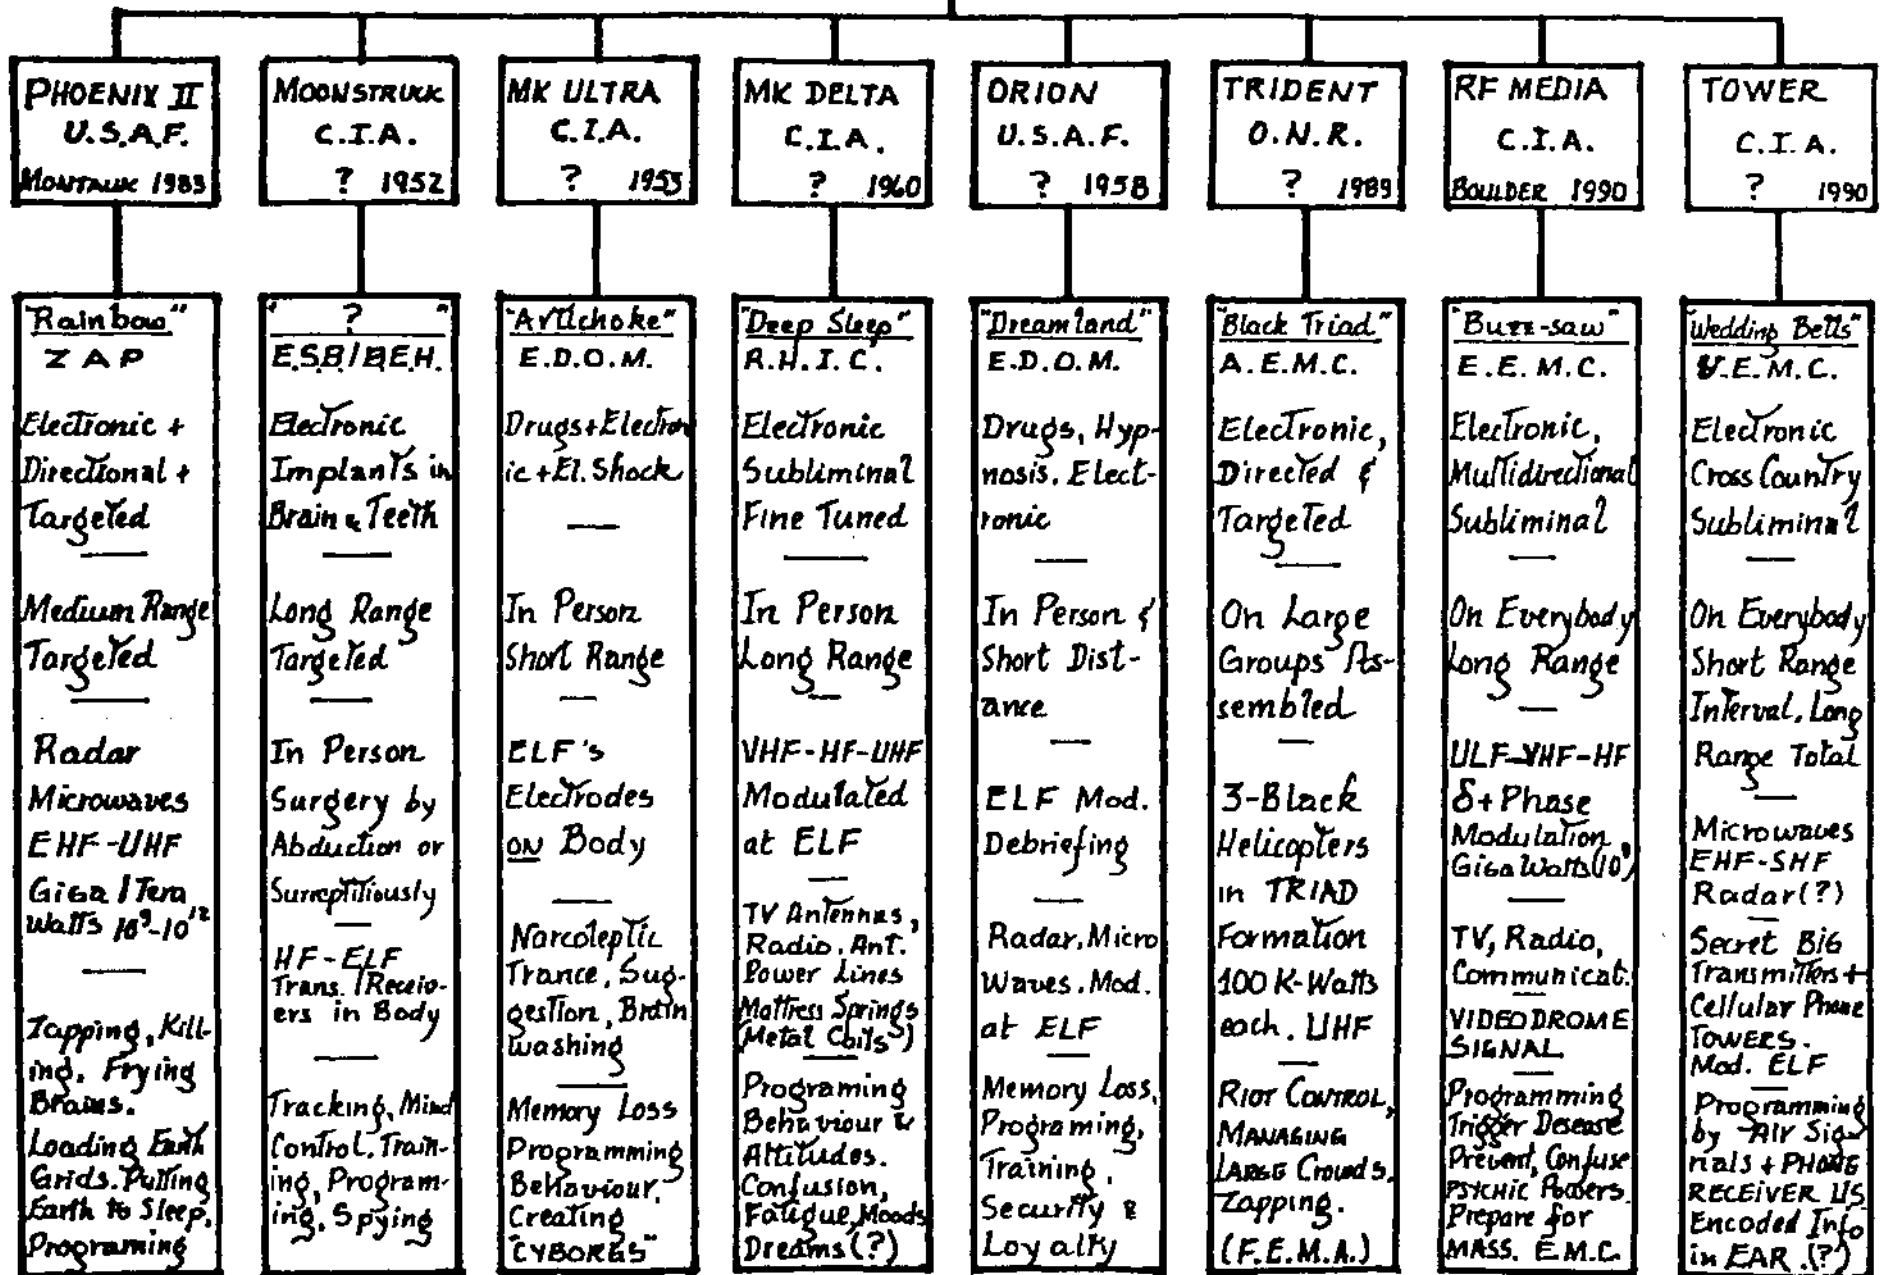 PHOENIX II
U.S.A.F.
MONTAUK 1983
MOONSTRUCK
C.I.A.
? 1952
MK ULTRA
C.I.A.
? 1953
MK DELTA
C.I.A.
? 1960
ORION
U.S.A.F.
? 1958
TRIDENT
O.N.R.
? 1989
RF MEDIA
C.I.A.
BOULDER 1990
TOWER
C.I.A.
? 1990
"Rainbow"
ZAP
Electronic +
Directional +
Targeted
Medium Range
Targeted
Radar
Microwaves
EHF-UHF
Giga / Tera
Watts 10⁹-10¹²
Zapping, Kill-
ing, Frying
Brains.
Loading Earth
Grids. Putting
Earth to Sleep,
Programing
" ? "
E.S.B./B.E.H.
Electronic
Implants in
Brain & Teeth
Long Range
Targeted
In Person
Surgery by
Abduction or
Surreptitiously
HF-ELF
Trans./Receiv-
ers in Body
Tracking, Mind
Control, Train-
ing, Program-
ing, Spying
"Artichoke"
E.D.O.M.
Drugs+Electron
ic+El. Shock
In Person
Short Range
ELF's
Electrodes
ON Body
Narcoleptic
Trance, Sug-
gestion, Brain
washing
Memory Loss
Programming
Behaviour,
Creating
"CYBORGS"
"Deep Sleep"
R.H.I.C.
Electronic
Subliminal
Fine Tuned
In Person
Long Range
VHF-HF-UHF
Modulated
at ELF
TV Antennas,
Radio. Ant.
Power Lines
Mattress Springs
(Metal Coils)
Programing
Behaviour &
Attitudes.
Confusion,
Fatigue, Moods
Dreams(?)
"Dreamland"
E.D.O.M.
Drugs, Hyp-
nosis. Elect-
ronic
In Person &
Short Dist-
ance
ELF Mod.
Debriefing
Radar, Micro
Waves. Mod.
at ELF
Memory Loss,
Programing,
Training,
Security &
Loyalty
"Black Triad"
A.E.M.C.
Electronic,
Directed &
Targeted
On Large
Groups As-
sembled
3-Black
Helicopters
in TRIAD
Formation
100 K-Watts
each. UHF
RIOT CONTROL,
MANAGING
LARGE Crowds.
Zapping.
(F.E.M.A.)
"Buzz-saw"
E.E.M.C.
Electronic,
Multidirectional
Subliminal
On Everybody
Long Range
ULF-VHF-HF
δ+Phase
Modulation,
Giga Watts(10⁹)
TV, Radio,
Communicat.
VIDEODROME
SIGNAL
Programming
Trigger Desease
Prevent, Confuse
PSYCHIC Powers.
Prepare for
MASS. E.M.C.
"Wedding Bells"
V.E.M.C.
Electronic
Cross Country
Subliminal
On Everybody
Short Range
Interval, Long
Range Total
Microwaves
EHF-SHF
Radar(?)
Secret BiG
Transmitters+
Cellular Phone
TOWERS.
Mod. ELF
Programming
by AIR Sig-
nals + PHONE
RECEIVER US
Encoded Info
in EAR.(?)